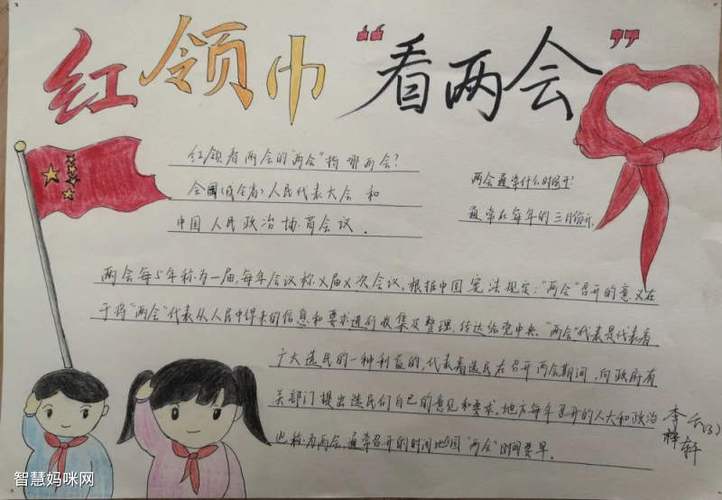 红领巾“看两会”
红领看两会的“两会”指哪两会?
全国(或全省)人民代表大会 和
中国人民政治协商会议.
两会通常什么时候开?
通常在每年的三月份开.
两会每5年称为一届,每年会议称X届X次会议,根据中国宪法规定:“两会”召开的意义在
于将“两会”代表从人民中得来的信息和要求进行收集及整理,传达给党中央.“两会”代表是代表着
广大选民的一种利益的,代表着选民在召开两会期间,向政府有
关部门提出选民们自己的意见和要求,地方每年召开的人大和政治
也称为两会,通常召开的时间比全国“两会”时间要早.
李梓轩
云(3)
智慧妈咪网